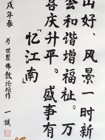 山，风景一时新
会和谐增福祉。万
喜庆升平。盛事有
忆江南
戌年春
为世界佛教论坛作 一诚